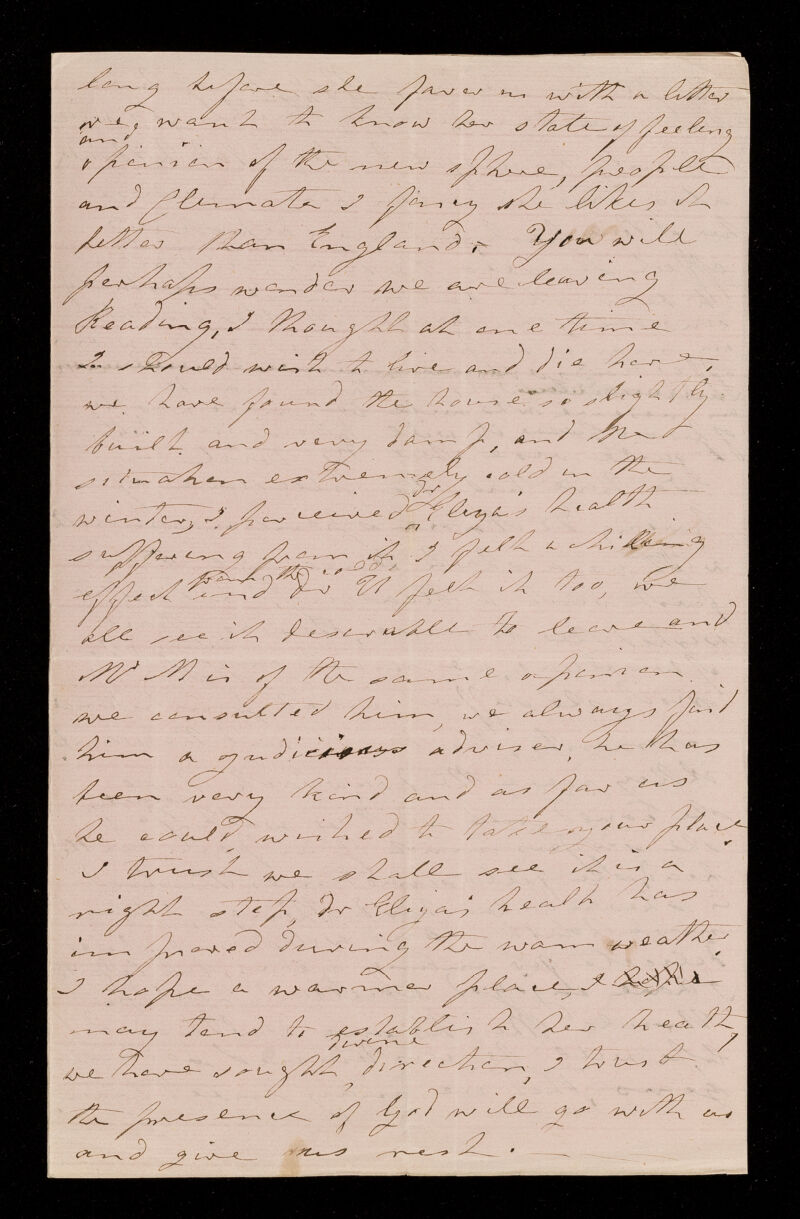 long before she favor us with a letter
we want to know her state of feeling
and
opinion of the new sphere, people
and Climate I fancy she likes it
better than England. You will
perhaps wonder we are leaving
Reading, I thought at one time
I should wish to live and die here,
we have found the house so slightly
built and very damp, and the
situation extremely cold in the
winter, I perceived dr Eliza's health
suffering from it I felt a chilling
effect from the cold
and dr E felt it too, we
all see it desirable to leave and
Mr M is of the same opinion
we consulted him, we always find
him a judicious adviser, he has
been very kind and as far as
he could wished to take your place
I trust we shall see it is a
right step, dr Eliza's health has
improved during the warm weather
I hope a warmer place,
may tend to establish her health,
divine
we have sought direction, I trust
the presence of God will go with us
and give us rest.